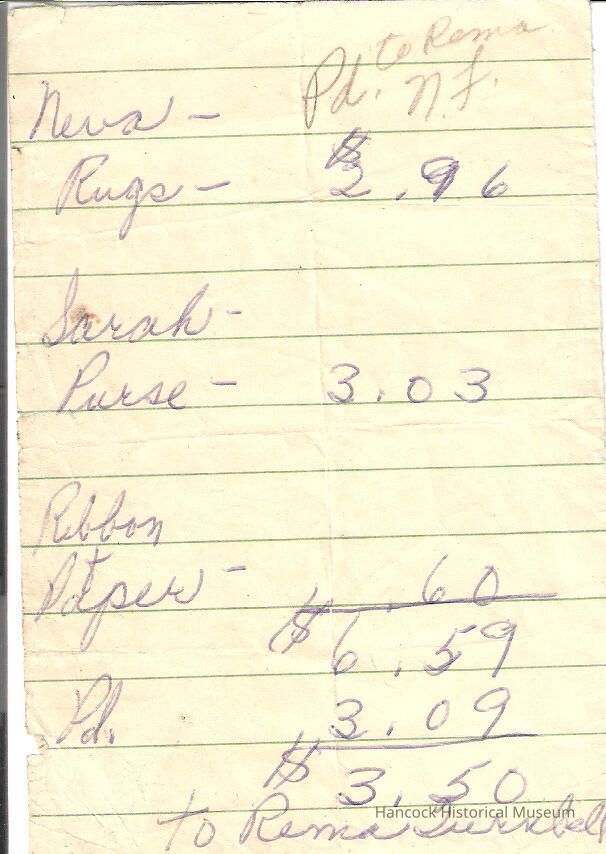 to Rema
Pd. N.F.
Neva -
Rugs - $2.96
Sarah -
Purse - 3.03
Ribbon
+
Paper - .60
$6.59
Pd. 3.09
$3.50
to Rema Turnbull
Hancock Historical Museum